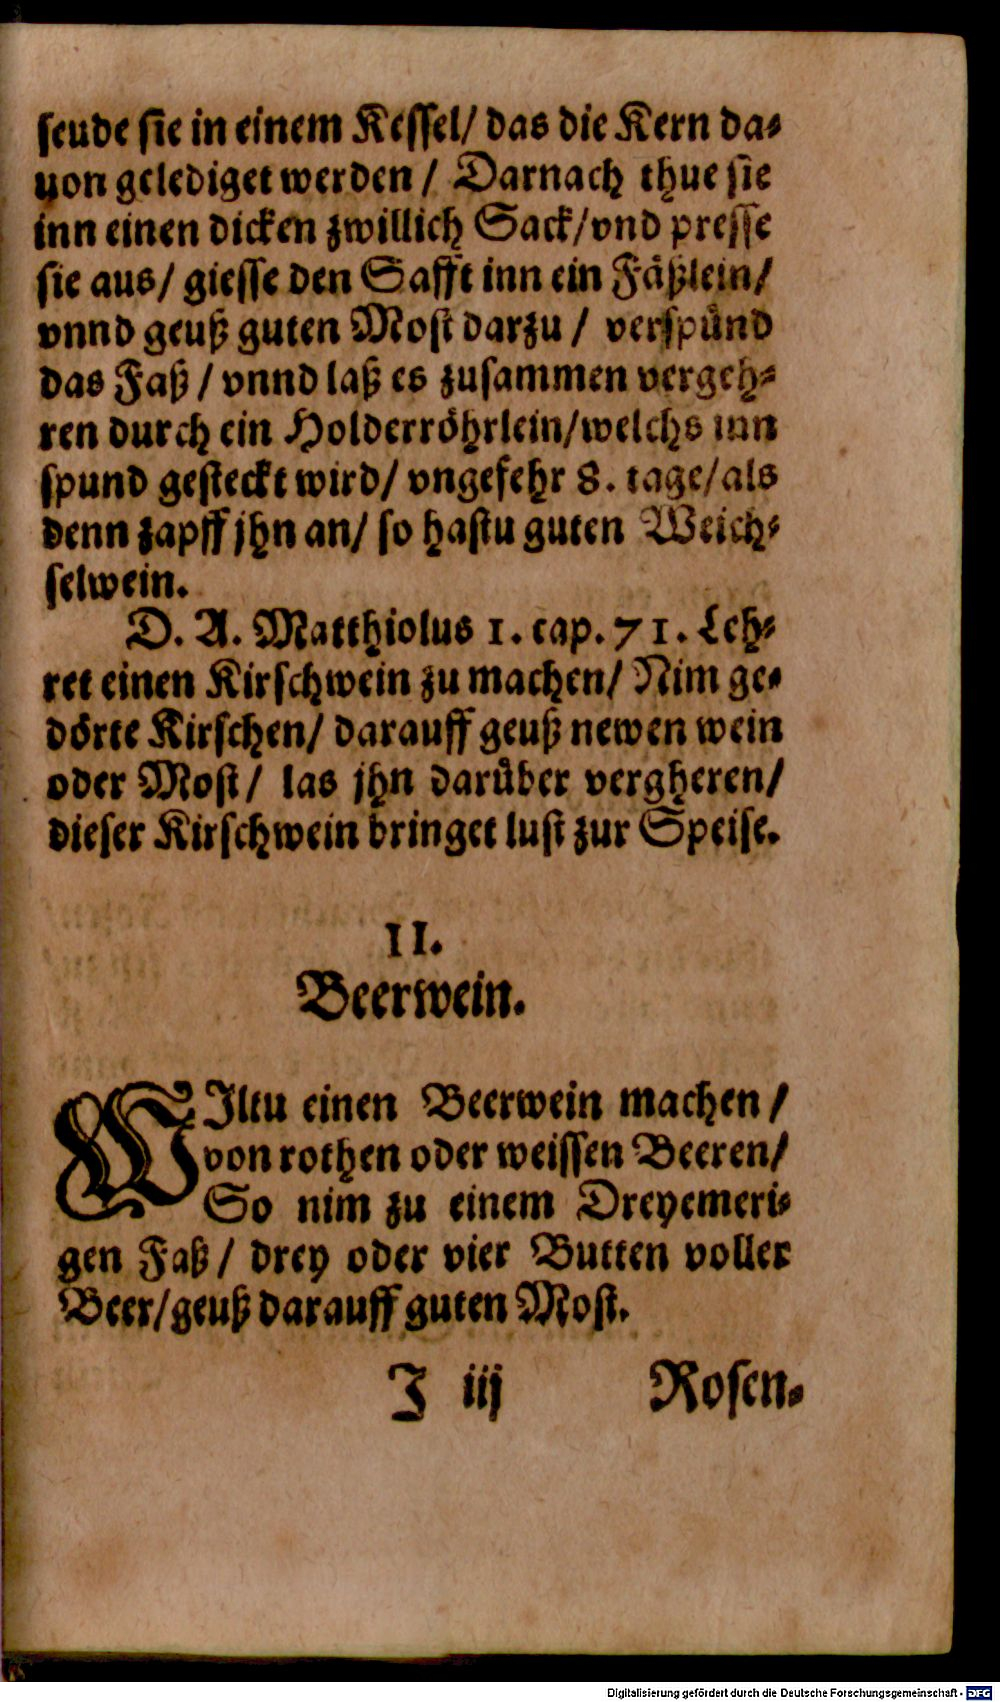 seude sie in einem Kessel/ das die Kern da-
uon gelediget werden / Darnach thue sie
inn einen dicken zwillich Sack/vnd presse
sie aus/ giesse den Safft inn ein Fäßlein/
vnnd geuß guten Most darzu / verspünd
das Faß / vnnd laß es zusammen vergeh-
ren durch ein Holderröhrlein/welchs inn
spund gesteckt wird/ vngefehr 8. tage/als
denn zapff jhn an/ so hastu guten Weich-
selwein.
D. A. Matthiolus 1. cap. 71. Leh-
ret einen Kirschwein zu machen/ Nim ge-
dörte Kirschen/ darauff geuß newen wein
oder Most/ las jhn darüber vergheren/
dieser Kirschwein bringet lust zur Speise.
II.
Beerwein.
WIltu einen Beerwein machen /
von rothen oder weissen Beeren/
So nim zu einem Dreyemeri-
gen Faß / drey oder vier Butten voller
Beer/geuß darauff guten Most.
J iij Rosen-
Digitalisierung gefördert durch die Deutsche Forschungsgemeinschaft - DFG